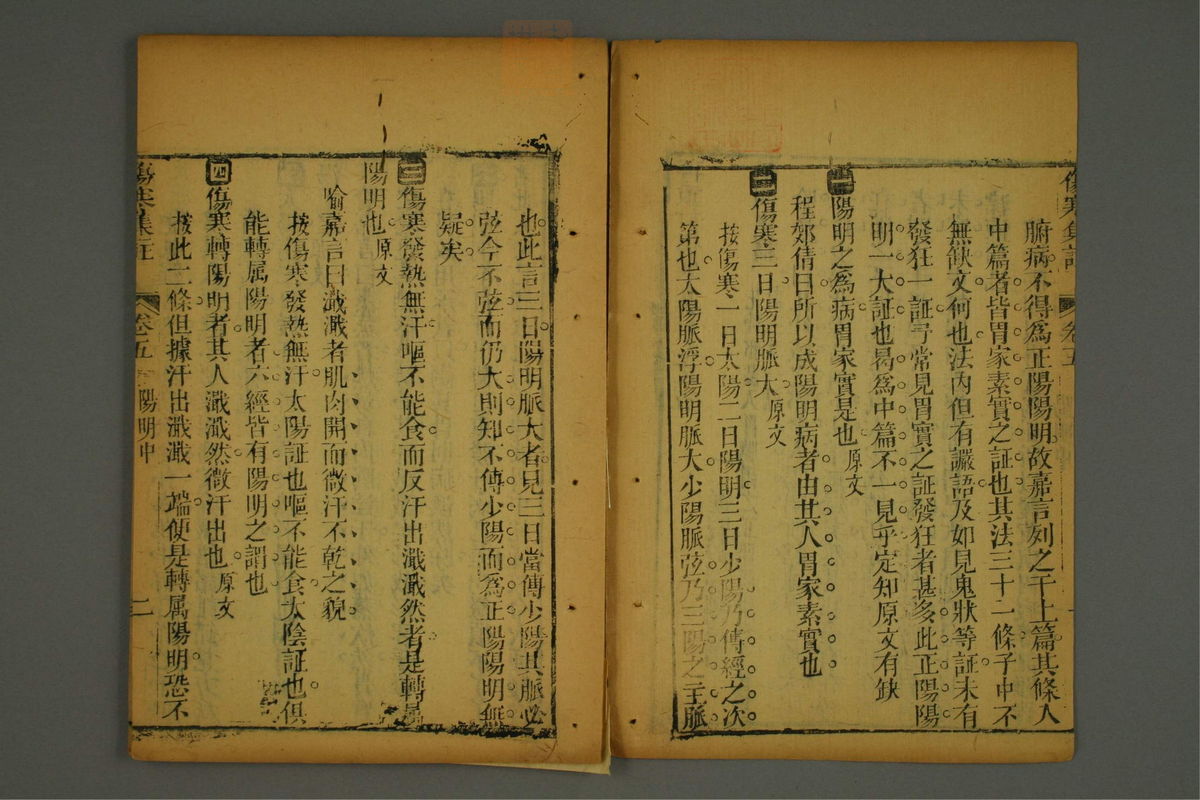 傷寒集註 卷五
腑病不得爲正陽陽明故嘉言列之于上篇其條入
中篇者皆胃家素實之証也其法三十二條子中不
無缺文何也法內但有讝語及如見鬼狀等証未有
發狂一証寻常見胃實之証發狂者甚多此正陽陽
明一大証也曷爲中篇不一見乎定知原文有缺
一陽明之爲病胃家實是也原文
程郊倩曰所以成陽明病者由其人胃家素實也
二傷寒三日陽明脈大原文
按傷寒一日太陽二日陽明三日少陽乃傳經之次
第也太陽脈浮陽明脈大少陽脈弦乃三陽之主脈
也此言三日陽明脈大者見三日當傳少陽其脈必
弦今不弦而仍大則知不傳少陽而爲正陽陽明無
疑矣
三傷寒發熱無汗嘔不能食而反汗出濈濈然者是轉屬
陽明也原文
喻嘉言曰濈濈者肌肉開而微汗不乾之貌
按傷寒發熱無汗太陽証也嘔不能食太陰証也俱
能轉属陽明者六經皆有陽明之謂也
四傷寒轉陽明者其人濈濈然微汗出也原文
按此二條但據汗出濈濈一端便是轉属陽明恐不
傷寒集註 卷五 陽明中 二